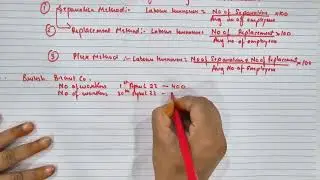 ① Separation Method:- Labour turnover = No of Separation x100
Avg no of employees
② Replacement Method:- Labour turnover: No of Replacement x100
Avg no of employees
③ Flux Method :- Labour turnover: No of Separation + No of Replacement x100
Avg No of employees
Biscuit Co.
No of workers 1st April 22 – 400
No of workers 30th April 22 –